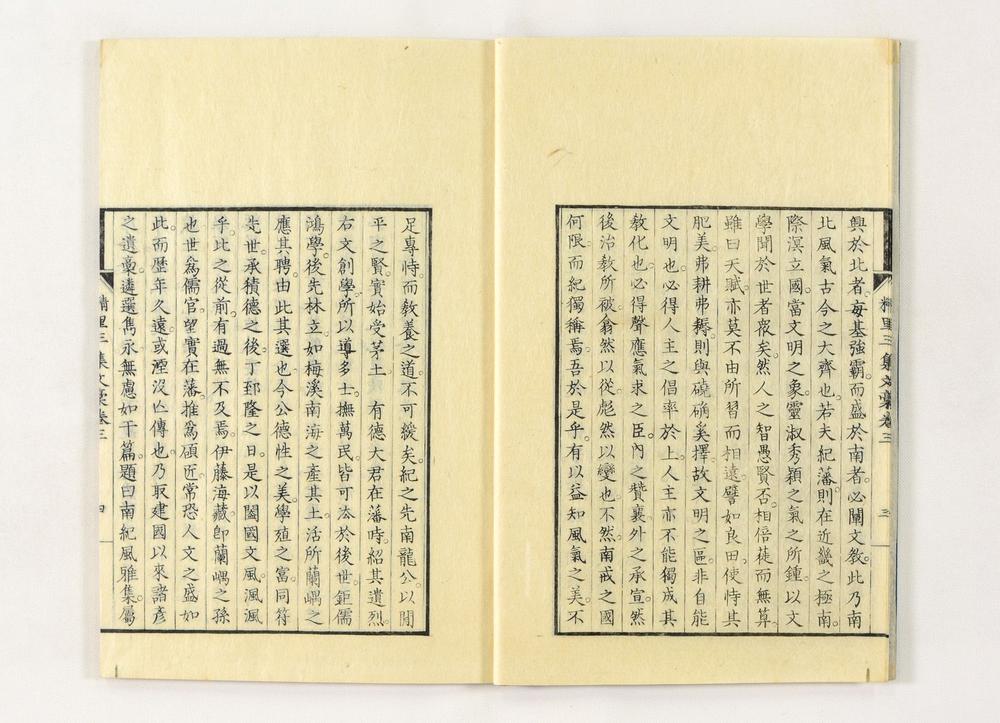 興於北者。每基強霸。而盛於南者。必闡文教。此乃南
北風氣古今之大齊也。若夫紀藩。則在近畿之極南。
際溟立國。當文明之象。靈淑秀穎之氣之所鍾。以文
學聞於世者衆矣。然人之智愚賢否。相倍蓰而無算。
雖曰天賦。亦莫不由所習而相遠。譬如良田。使恃其
肥美。弗耕弗耨。則與磽确奚擇。故文明之區。非自能
文明也。必得人主之倡率於上。人主亦不能獨成其
教化也。必得聲應氣求之臣。內之贊襄。外之承宣。然
後治教所被。翕然以從。彪然以變也。不然。南戒之國
何限。而紀獨稱焉。吾於是乎。有以益知風氣之美。不
精里三集文稾卷三
三
足專恃。而教養之道。不可緩矣。紀之先南龍公。以開
平之賢。實始受茅土。有德大君在藩時。紹其遺烈。
右文創學。所以導多士。撫萬民。皆可法於後世。鉅儒
鴻學。後先林立。如梅溪南海之產其土。活所蘭嵎之
應其聘。由此其選也。今公德性之美。學殖之富。同符
先世。承積德之後。丁郅隆之日。是以闔國文風。渢渢
乎。比之從前。有過無不及焉。伊藤海藏。卽蘭嵎之孫
也。世爲儒官。望實在藩。推爲碩匠。常恐人文之盛如
此。而歷年久遠。或湮沒亡傳也。乃取建國以來諸彥
之遺稾。遴選雋永。無慮如干篇。題曰南紀風雅集。屬
精里三集文稾卷三
四